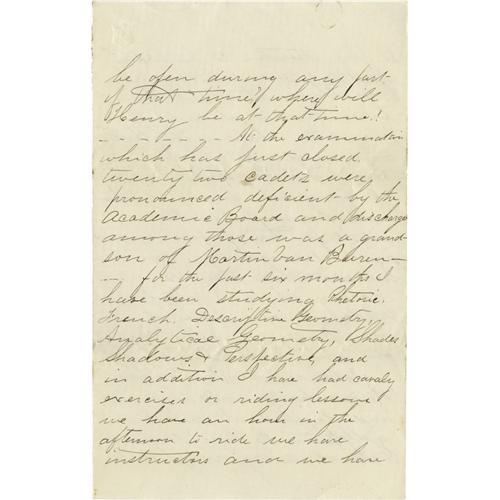 be open during any part
of that time? where will
Henry be at that time!
- - - - - - - At the examination
which has just closed
twenty two cadets were
pronounced deficient by the
Academic Board and discharged
among those was a grand-
son of Martin Van Buren -
- - for the past six months I
have been studying Rhetoric,
French, Descriptive Geometry,
Analytical Geometry, Shades
Shadows & Perspective, and
in addition I have had cavalry
exercises or riding lessons
we have an hour in the
afternoon to ride we have
instructors and we have